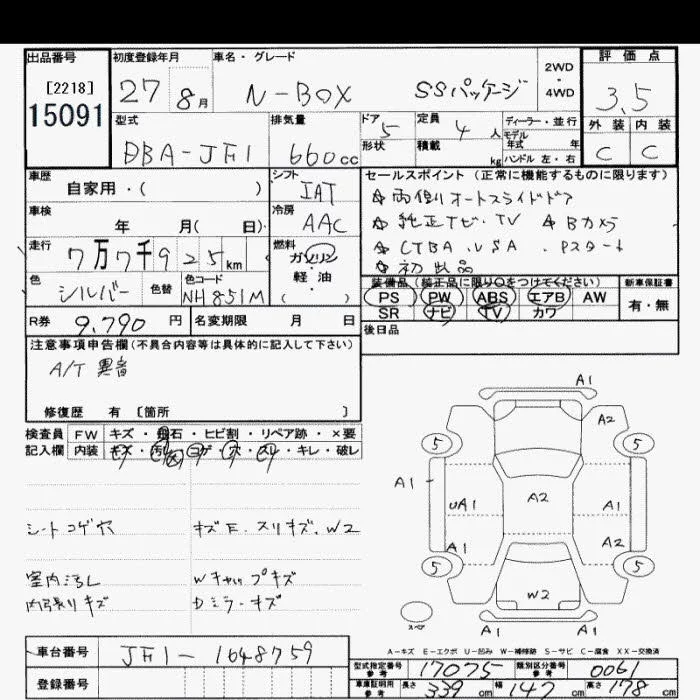 出品番号 初度登録年月 車名・グレード 2WD・4WD 評価点
[2218] 15091 27 8月 N-BOX SSパッケージ 3.5
型式 排気量 ドア 5 定員 4人 ディーラー・並行 外装 内装
形状 積載 kg モデル年式 年 ハンドル 左・右
DBA-JF1 660cc C C
車歴 シフト IAT セールスポイント（正常に機能するものに限ります）
自家用・（ ） ☆両側オートスライドドア
車検 冷房 AAC ☆純正ナビ・TV ☆Bカメラ
年 月（ 日） ☆CTBA.VSA.Pスタート
走行 7万7千925km 燃料 ガソリン・軽・油（ ） ☆初出品
色 シルバー 色替 色コード NH851M 装備品（純正品に限り○をつけてください） 新車保証書
PS PW ABS エアB AW 有・無
SR ナビ TV カワ
R券 9,790円 名変期限 月 日 後日品
注意事項申告欄（不具合内容等は具体的に記入して下さい）
A/T 異音
修復歴 有 〔箇所 〕
検査員 FW キズ・飛石・ヒビ割・リペア跡・×要
記入欄 内装 キズ・汚れ・コゲ・穴・スレ・キレ・破レ
A1
A2
5 5
A1
UA1 A2 A1
A1 A2
5 5
W2
スペア A1 A1
シートコゲ穴 キズE.スリキズ.W2
室内汚れ Wキャップキズ
内張りキズ Dミラーキズ
A-キズ E-エクボ U-凹み W-補修跡 S-サビ C-腐食 XX-交換済
車台番号 JF1-1648759 型式指定番号 参考 17075 類別区分番号 参考 0061
登録番号 車庫証明用 参考 長さ 339cm 幅 147cm 高さ 178cm